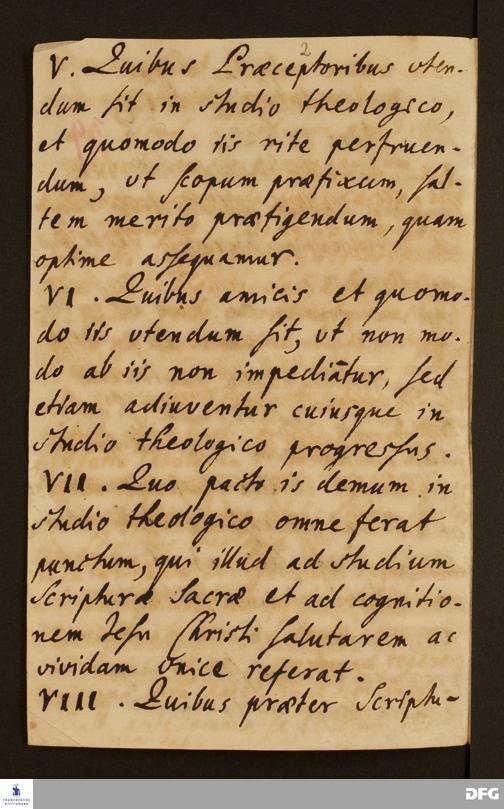 2
V. Quibus Præceptoribus uten-
dum sit in studio theologico,
et quomodo iis rite perfruen-
dum, ut scopum præfixum, sal-
tem merito præfigendum, quam
optime assequamur.
VI. Quibus amicis et quomo-
do iis utendum sit, ut non mo-
do ab iis non impediātur, sed
etiam adiuventur cuiusque in
studio theologico progressus.
VII. Quo pacto is demum in
studio theologico omne ferat
punctum, qui illud ad studium
Scripturæ Sacræ et ad cognitio-
nem Jesu Christi salutarem ac
vividam unice referat.
VIII. Quibus præter Scriptu-
FRANCKESCHE
STIFTUNGEN
DFG